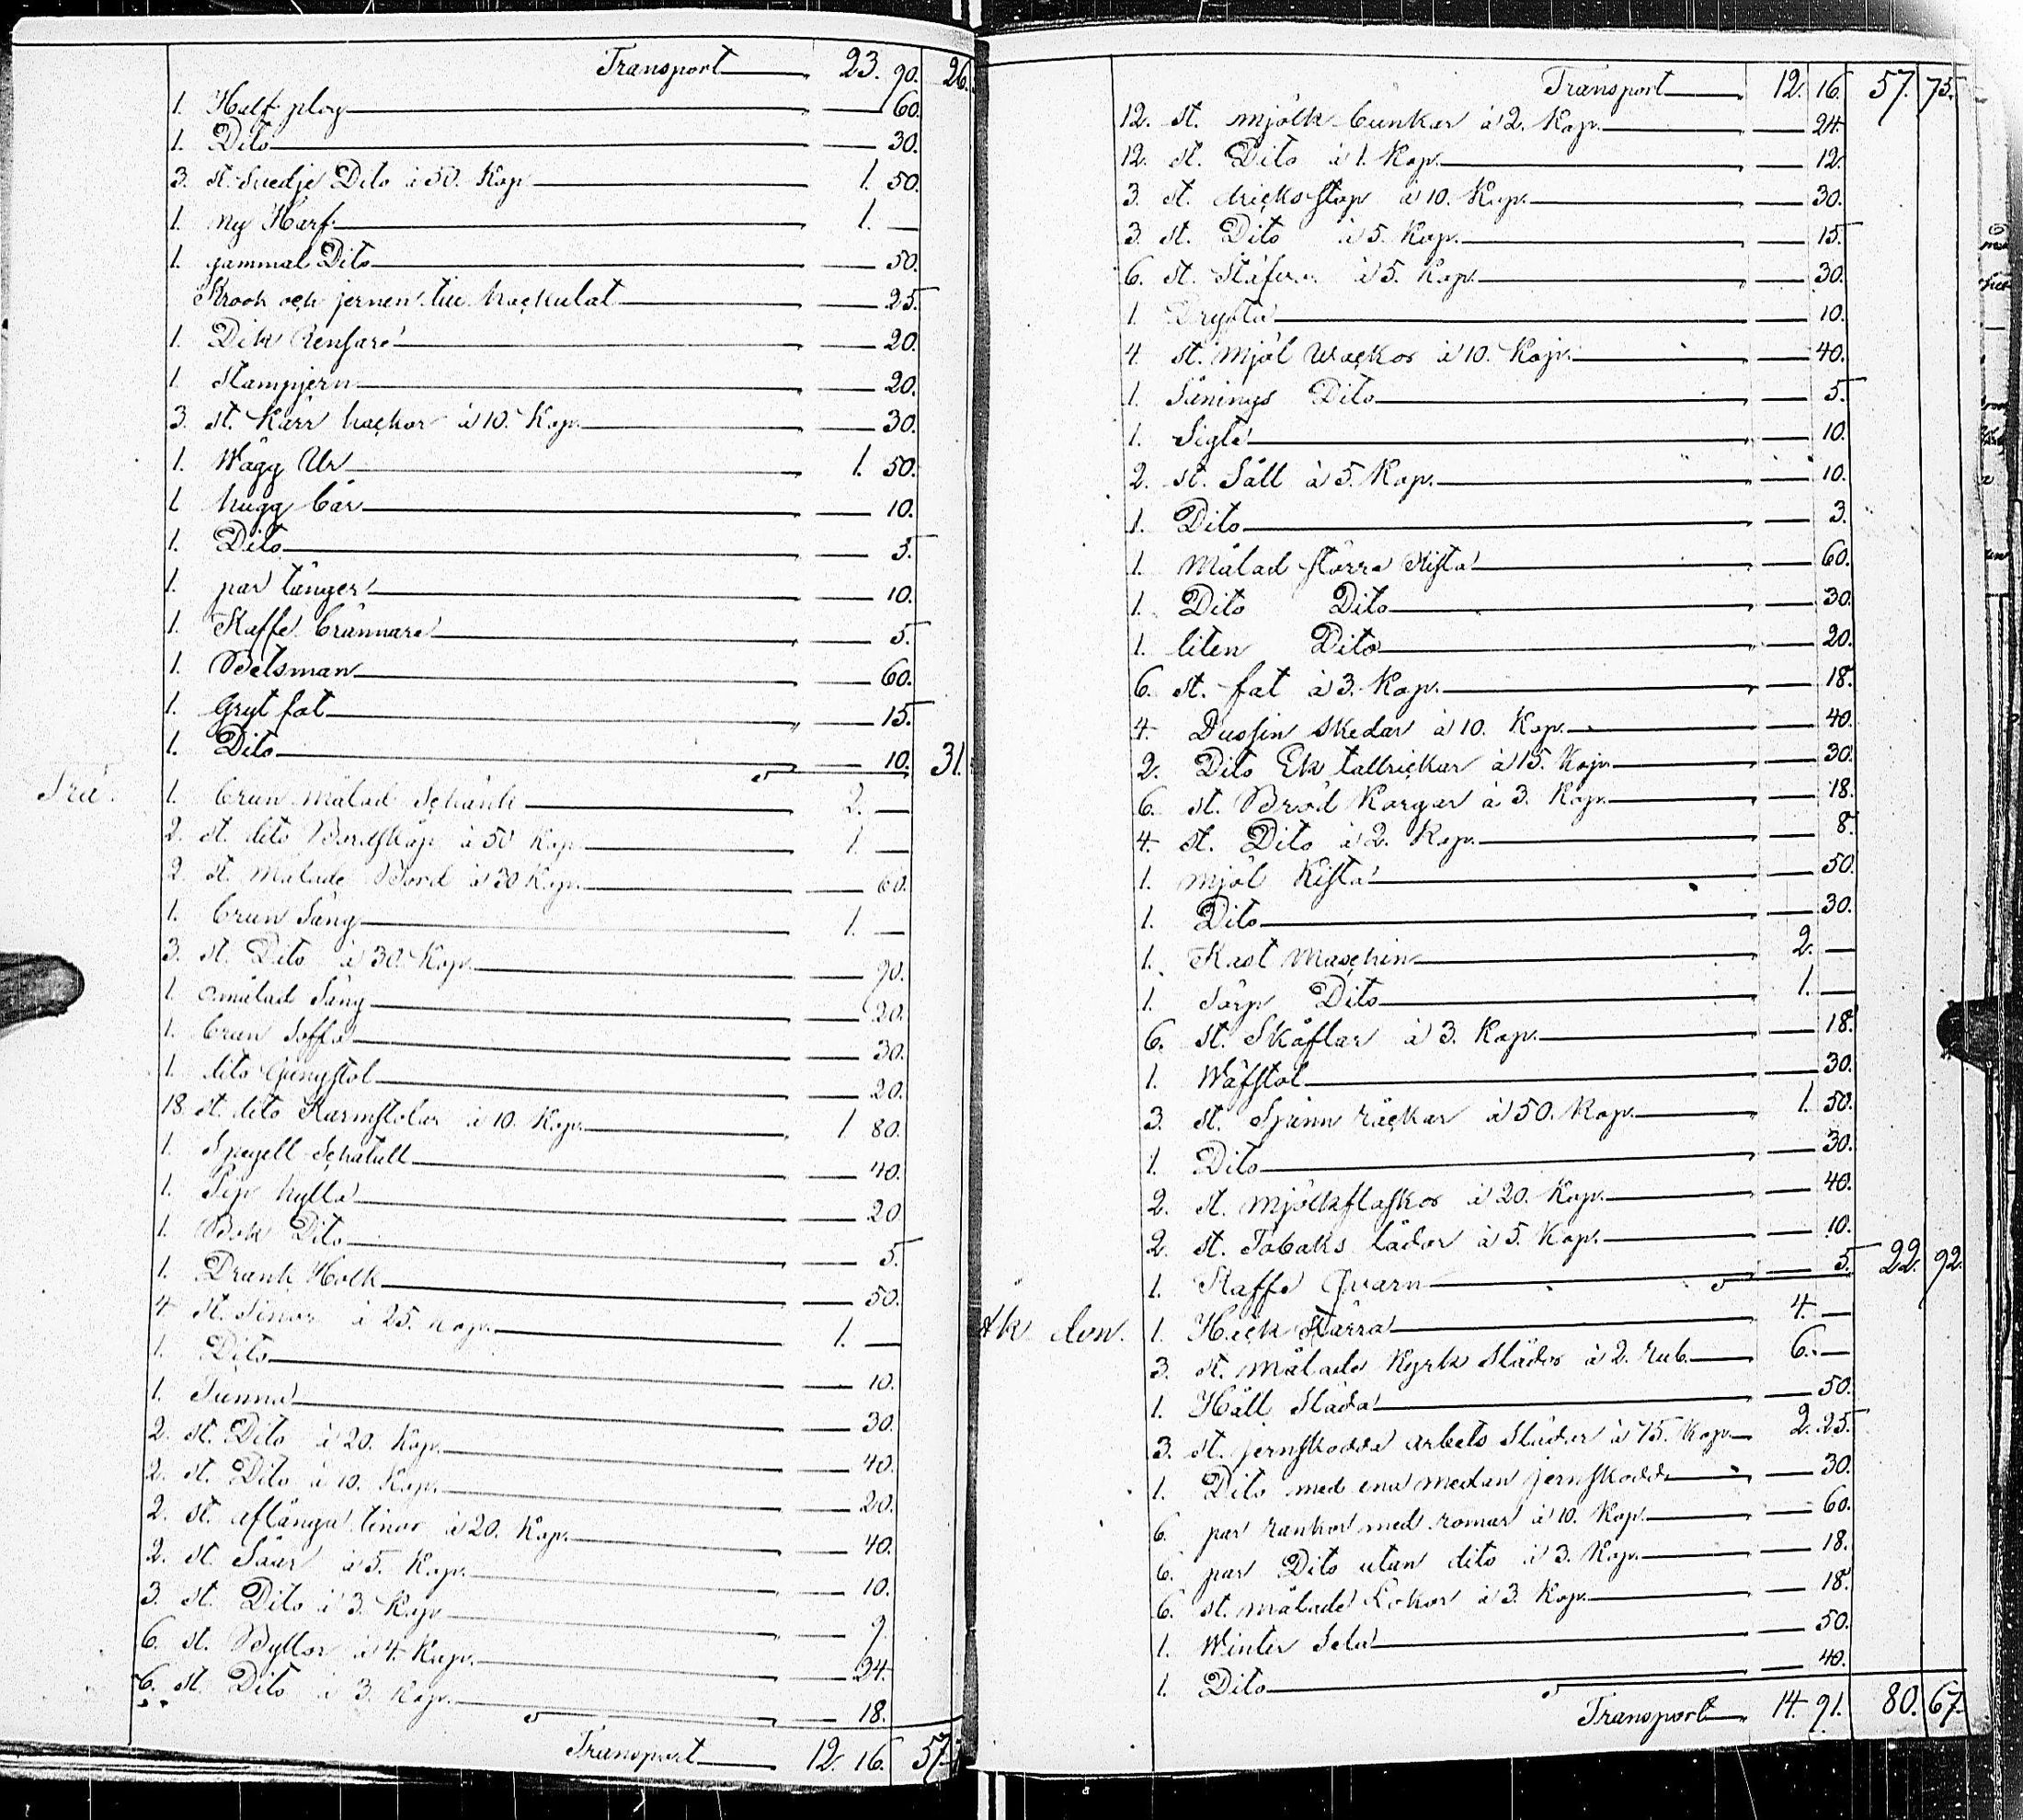 Transport 23. 90. 26.
1. Half plog 60.
1. Dito 30.
3. st. Svedje Dito à 50. Kop 1. 50.
1. ny Harf 1. —
1. gammal Dito 50.
Krook och jernen till 25.
1. Dik Rensare 20.
1. Stampjern 20.
3. st. Kärr hackor à 10. Kop. 30.
1. Wägg Ur 1. 50.
1. hugg bår 10.
1. Dito 5.
1. par tänger 10.
1. Kaffe brännare 5.
1. Betsman 60.
1. Gryt fat 15.
1. Dito 10. 31.
Trä. 1. brun målad Schänk 2. —
2. st. dito Bordskåp à 50 Kop. 1. —
2. st. Målade Bord à 30 Kop. 60.
1. brun Säng 1. —
3. st. Dito à 30. Kop. 90.
1. omålad Säng 20.
1. brun Soffa 30.
1. dito Gungstol 20.
18. st. dito Karmstolar à 10. Kop. 1. 80.
1. Spegell Schatull 40.
1. hylla 20
1. Bok Dito 5.
1. Drank Holk 50.
4. st. Tinor à 25. Kop. 1. —
1. Dito 10.
1. Tunna 30.
2. st. Dito à 20. Kop. 40.
2. st. Dito à 10. Kop. 20.
2. st. aflånga tinor à 20. Kop. 40.
2. st. Såar à 5. Kop. 10.
3. st. Dito à 3. Kop 9.
6. st. Byttor à 4. Kop. 24.
6. st. Dito à 3. Kop. 18.
Transport 12. 16. 57.
Transport 12. 16. 57. 75.
12. st. mjölk bunkar à 2. Kop. 24.
12. st. Dito à 1. Kop. 12.
3. st. dricks stop à 10. Kop. 30.
3. st. Dito à 5. Kop. 15.
6. st. à 5. Kop. 30.
1. 10.
4. st. Mjöl wackor à 10. Kop. 40.
1. Sånings Dito 5.
1. Sigte 10.
2. st. Såll à 5. Kop. 10.
1. Dito 3.
1. Målad större Kista 60.
1. Dito Dito 30.
1. liten Dito 20.
6. st. fat à 3. Kop. 18.
4. Dussin skedar à 10. Kop. 40.
2. Dito Ek tallrickar à 15. Kop. 30.
6. st. Bröd Korgar à 3. Kop. 18.
4. st. Dito à 2. Kop. 8.
1. mjöl Kista 50.
1. Dito 30.
1. Kast Maschin 2. —
1. Sörp Dito 1. —
6. st. Skoflar à 3. Kop. 18.
1. Wäfstol 30.
3. st. Spinn räckar à 50. Kop. 1. 50.
1. Dito 30.
2. st. mjölkflaskor à 20. Kop. 40.
2. st. Tobaks lådor à 5. Kop. 10.
1. Kaffe Qvarn 5. 22. 92.
Åk don. 1. Häck Kärra 4. —
3. st. målade Kyrk Slädor à 2. rub. 6. —
1. Håll Släda 50.
3. st. jernskodda arbets Slädar à 75. Kop. 2. 25.
1. Dito med ena medan jernskodd 30.
6. par med romar à 10. Kop. 60.
6. par Dito utan dito à 3. Kop. 18.
6. st. målade Lokor à 3. Kop. 18.
1. Winter Sela 50.
1. Dito 40.
Transport 14. 91. 80. 67.